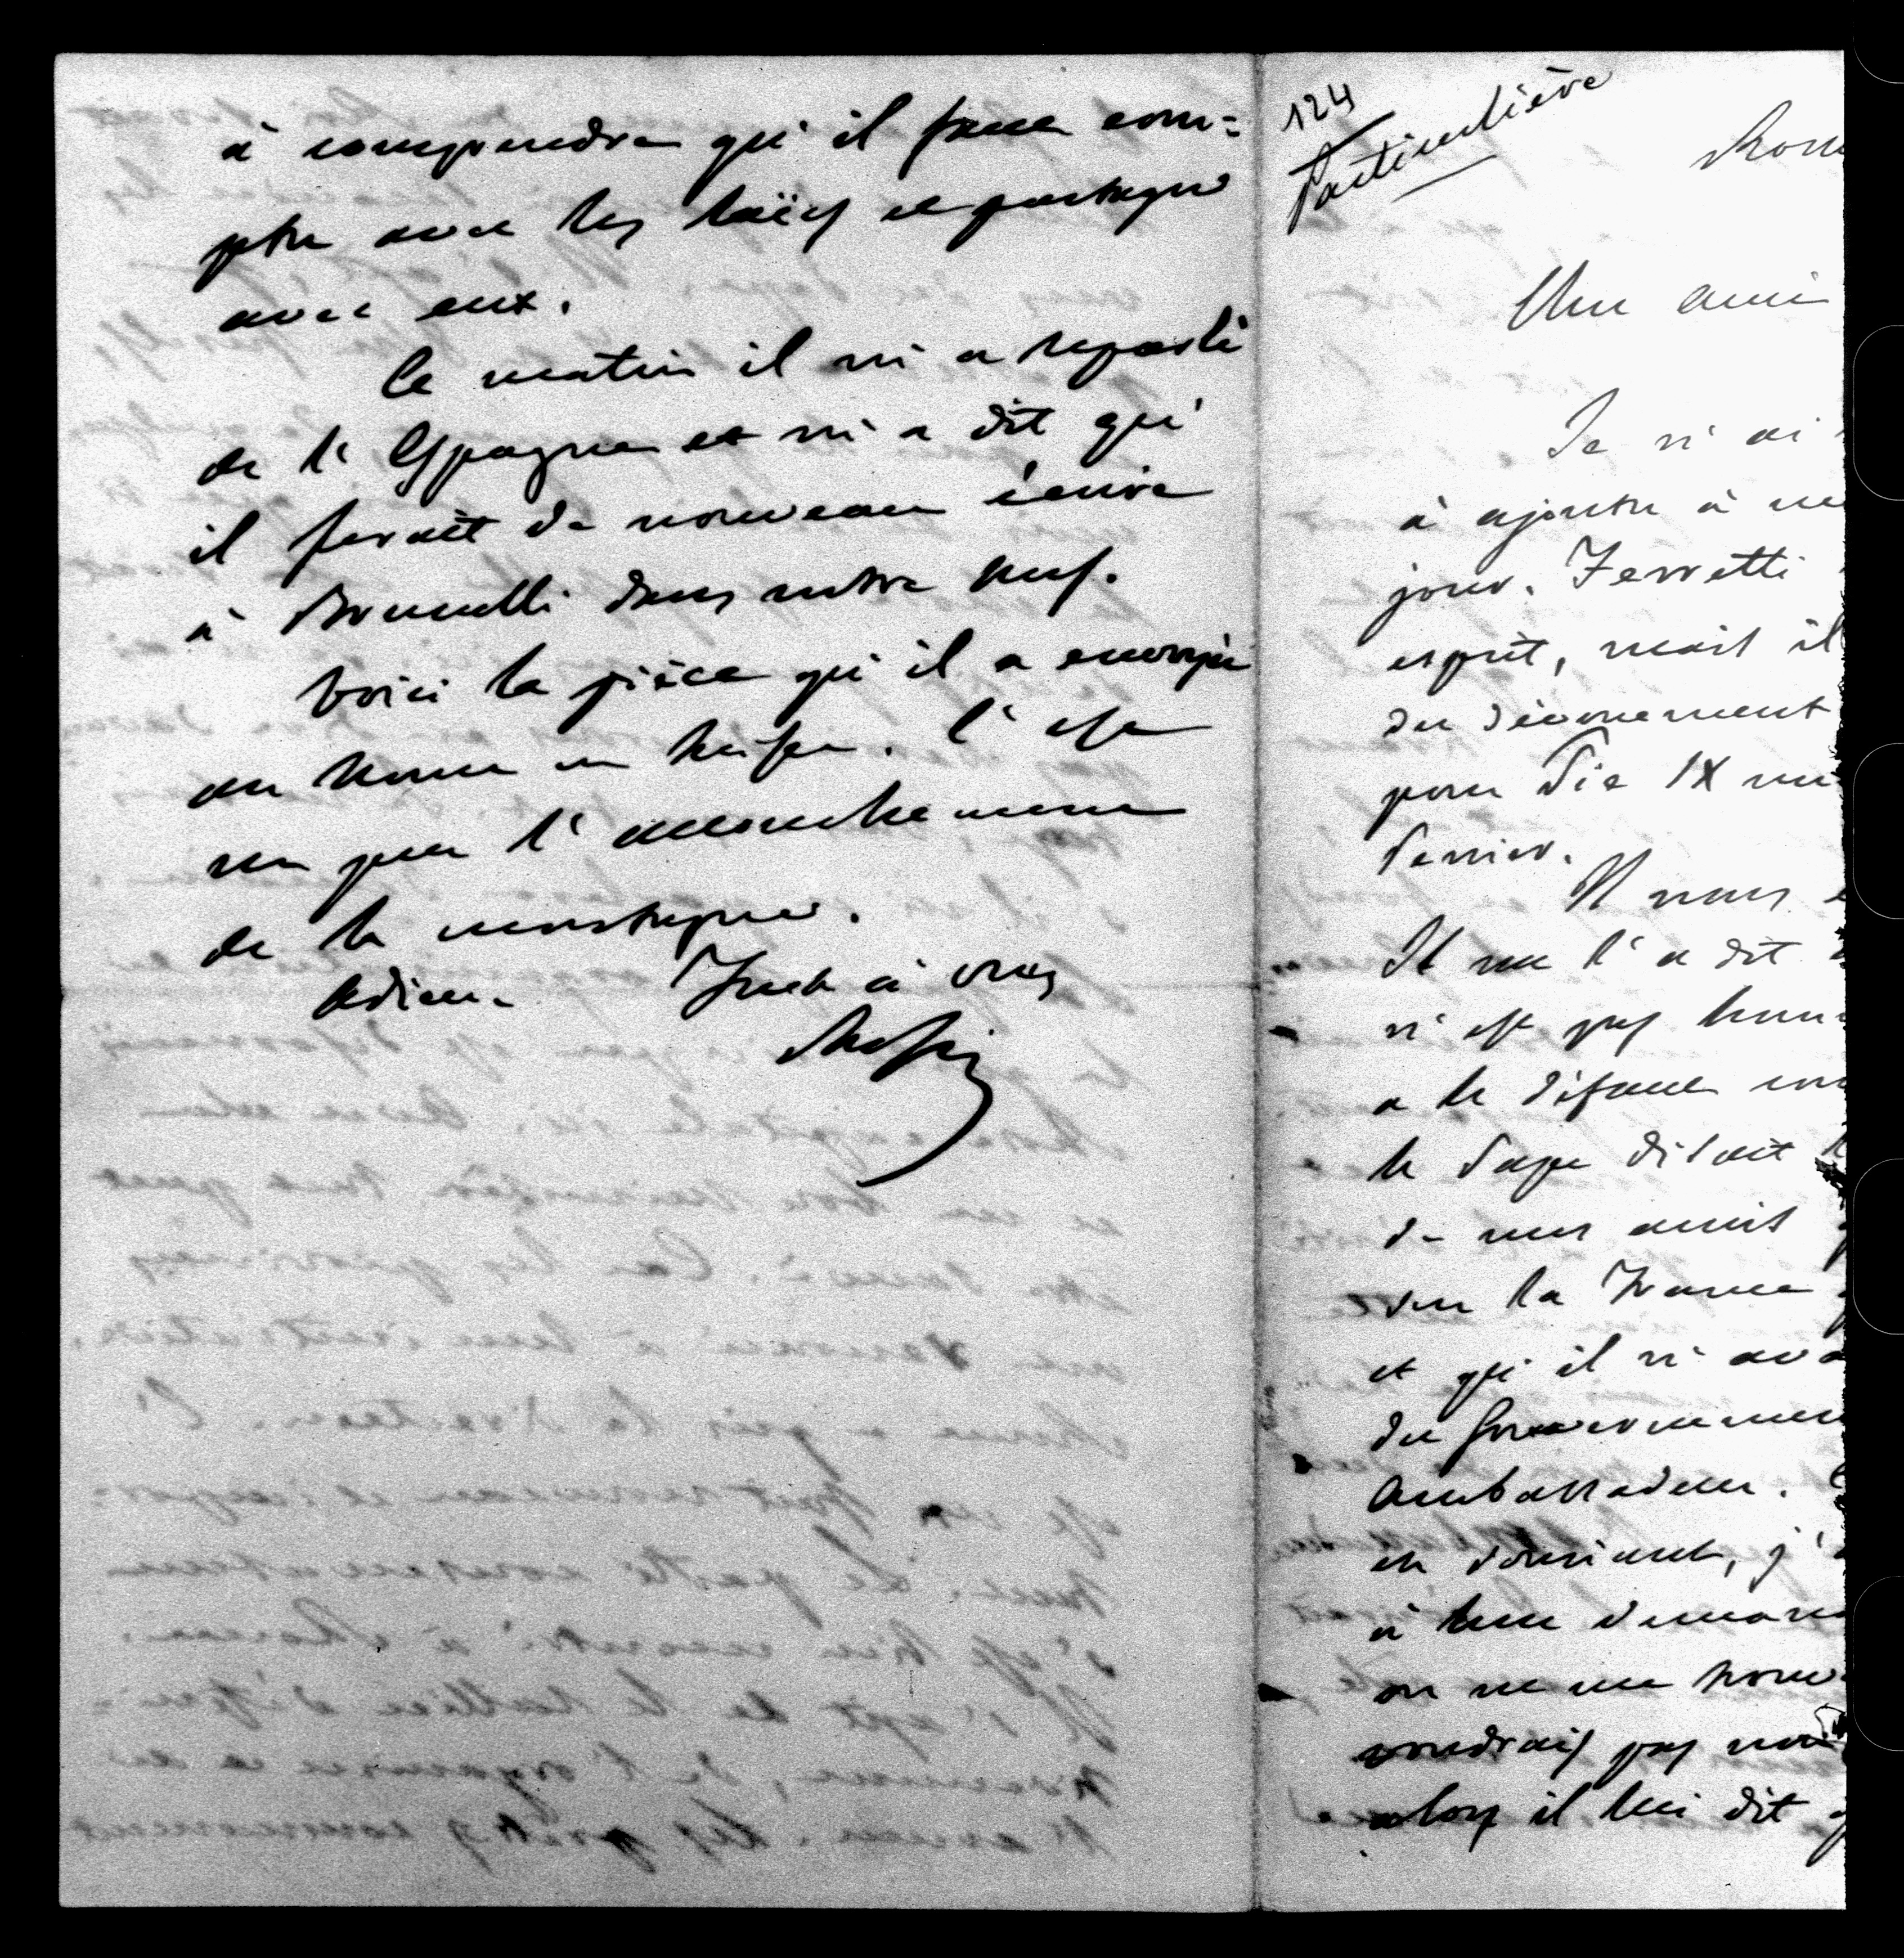 à comprendre qu'il faut com=
pter avec les laïcs et partager
avec eux.
Ce matin il m'a reparlé
de l'Espagne et m'a dit qu'
il ferait de nouveau écrire
à Brunelli dans notre sens.
Voici la pièce qu'il a envoyée
au Nonce en Suisse. C'est
un peu l'accouchement
de la montagne.
Adieu. Tout à vous
Rossi
124
Particulière
Rom
Mon ami
Je n'ai
à ajouter à me
jour. Ferretti
esprit, mais il
du dévouement
pour Pie IX
dernier.
Il nous
Il me l'a dit
n'est pas
a le défaut
le Pape disait
de mes amis
sur la France
et qu'il n'ava
du Gouvernemen
Ambassadeur. C
en souriant, j'
à leur deman
on ne me nom
voudrais pas
alors il lui dit q